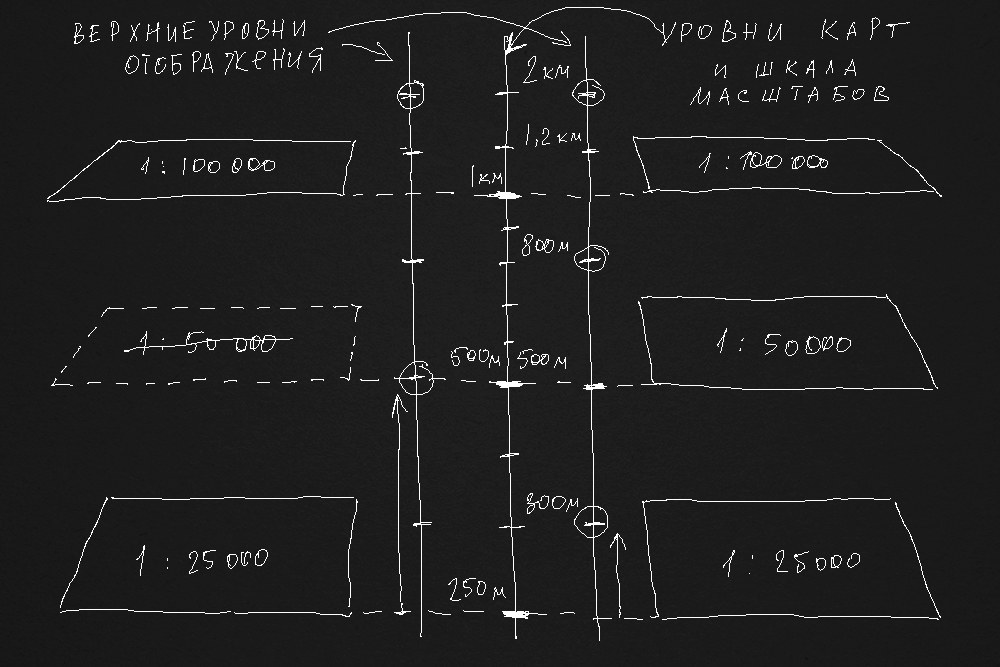 ВЕРХНИЕ УРОВНИ
ОТОБРАЖЕНИЯ
УРОВНИ КАРТ
И ШКАЛА
МАСШТАБОВ
2 км
1,2 км
1 : 100 000
1 : 100 000
1 км
800 м
1 : 50 000
1 : 50 000
500 м
500 м
300 м
1 : 25 000
1 : 25 000
250 м